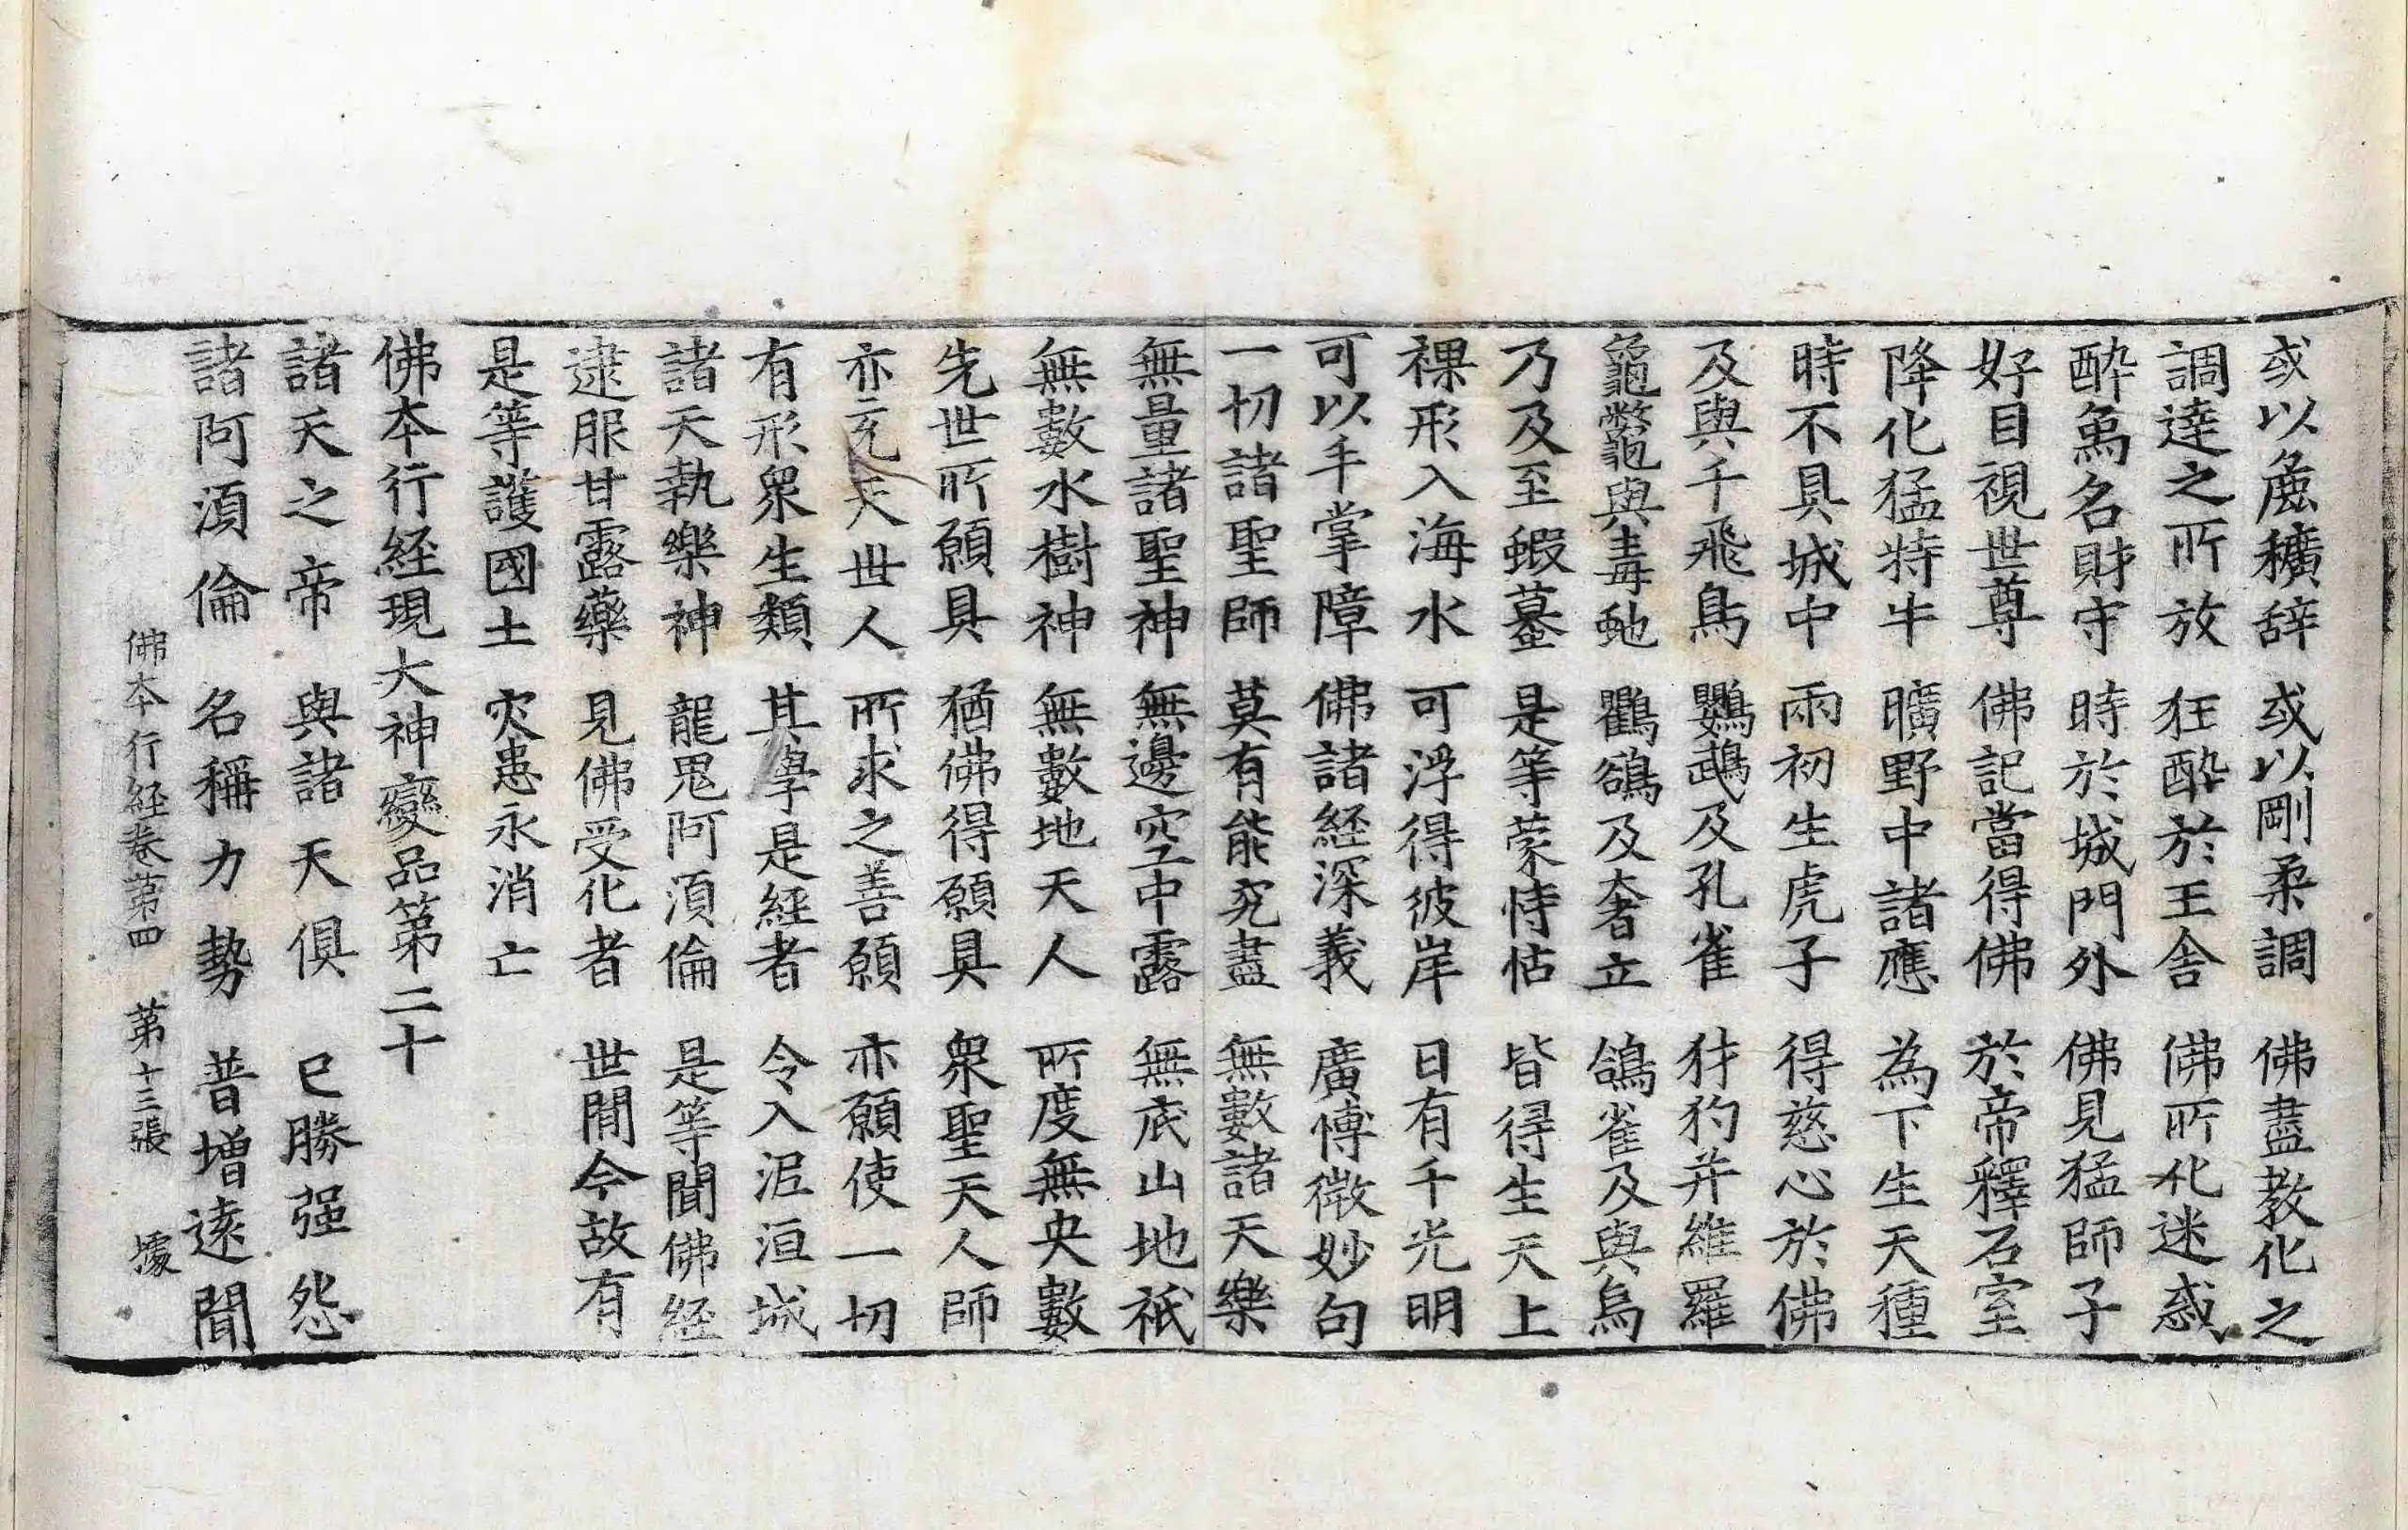 或以麁穬辞 或以剛柔調 佛盡教化之
調達之所放 狂醉於王舎 佛所化迷惑
醉象名財守 時於城門外 佛見猛師子
好目視世尊 佛記當得佛 於帝釋石室
降化猛特牛 曠野中諸應 為下生天種
時不具城中 兩初生虎子 得慈心於佛
及與千飛鳥 鸚鵡及孔雀 犲狗并維羅
龜鼈與毒虵 鸛鵒及奢立 鴿雀及與烏
乃及至蝦蟇 是等蒙恃怙 皆得生天上
裸形入海水 可浮得彼岸 日有千光明
可以手掌障 佛諸経深義 廣博微妙句
一切諸聖師 莫有能究盡 無數諸天樂
無量諸聖神 無邊空中露 無底山地祇
無數水樹神 無數地天人 所度無央數
先世所願具 猶佛得願具 衆聖天人師
亦充天世人 所求之善願 亦願使一切
有形衆生類 其學是経者 令入泥洹城
諸天執樂神 龍鬼阿湏倫 是等聞佛経
逮服甘露藥 見佛受化者 世間今故有
是等護國土 灾患永消亡
佛本行経現大神變品第二十
諸天之帝 與諸天俱 已勝强怨
諸阿湏倫 名稱力勢 普增遠聞
佛本行経卷苐四 苐十三張 壉